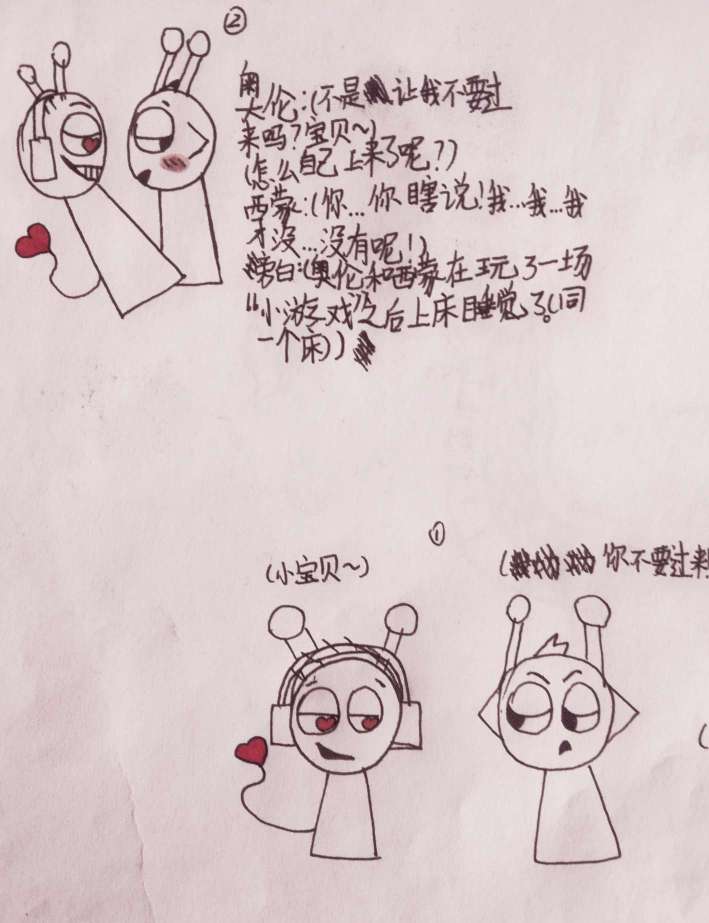 ②
奥伦:(不是让我不要过
来吗?宝贝~)
(怎么自己上来了呢?)
西蒙:(你...你瞎说!我...我...我
才没...没有呢!)
旁白:(奥伦和西蒙在玩了一场
“小游戏”之后上床睡觉了。(同
一个床))
①
(小宝贝~)
(你不要过来
(